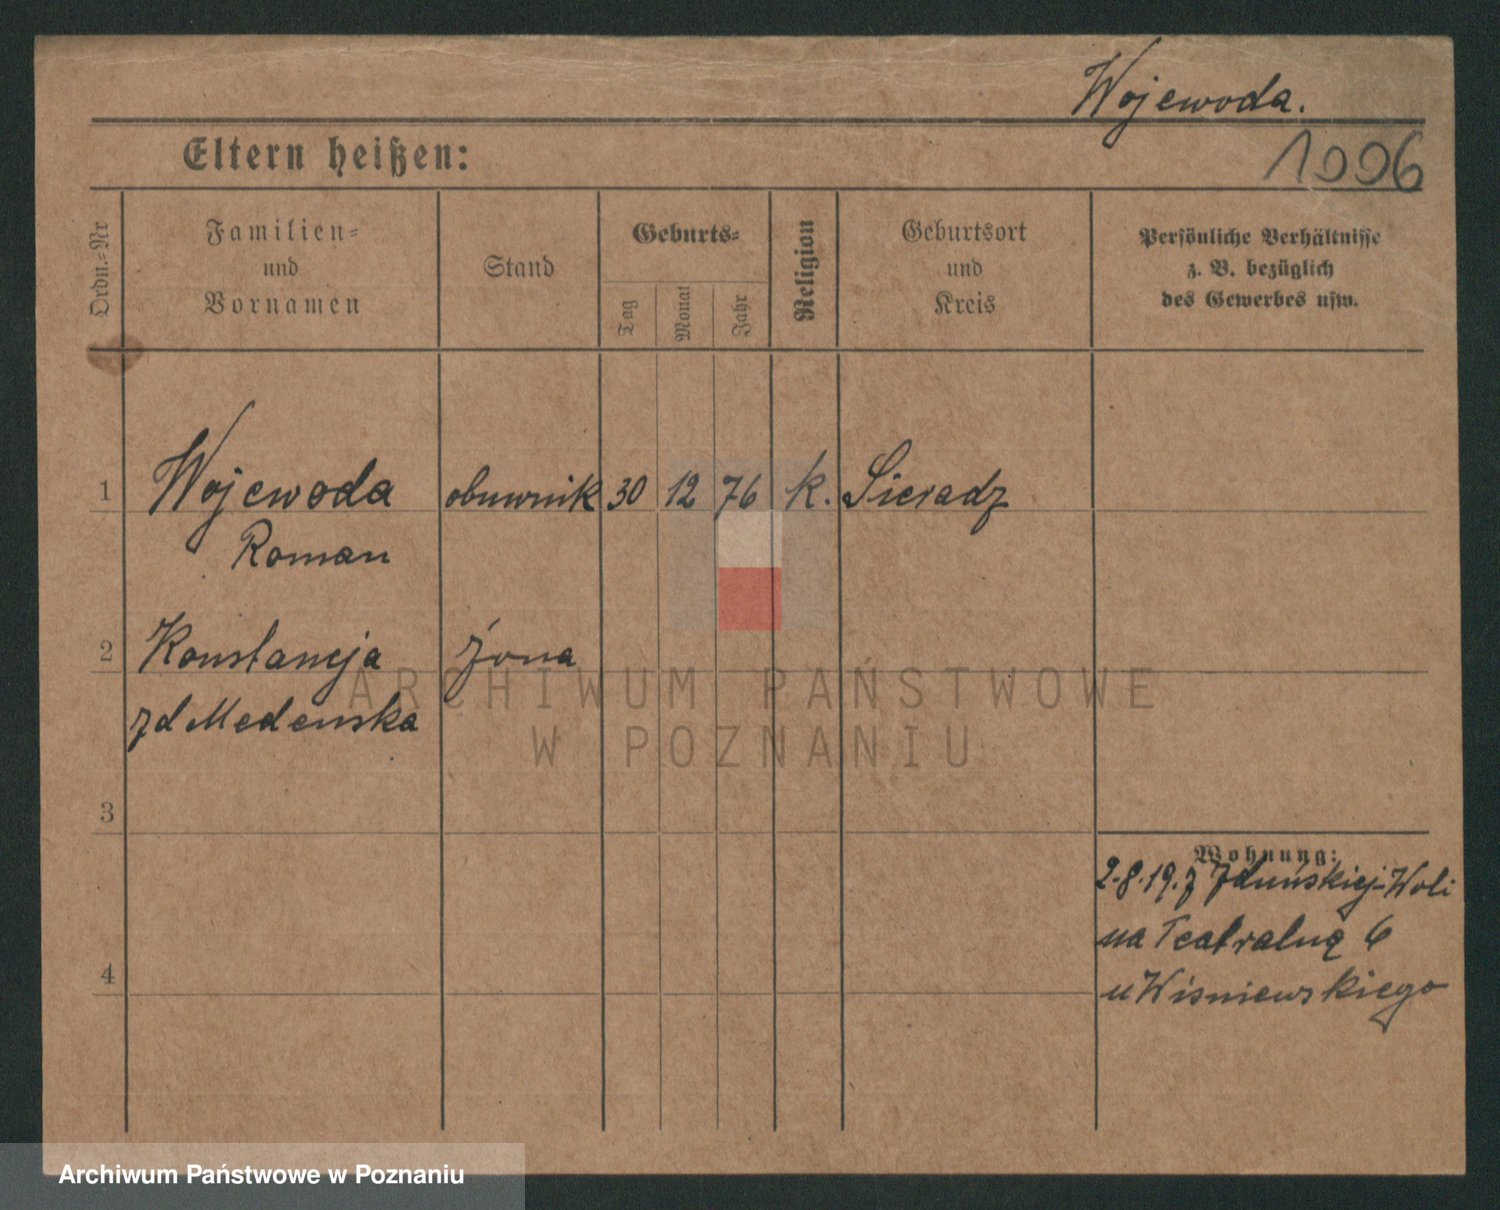 Wojewoda.
Eltern heißen:
1006
Ordn.-Nr
Familien-
und
Vornamen
Stand
Geburts-
Tag
Monat
Jahr
Religion
Geburtsort
und
Kreis
Persönliche Verhältnisse
z. B. bezüglich
des Gewerbes usw.
1 Wojewoda obuwnik 30 12 76 k. Sieradz
Roman
2 Konstancja żona
zd Medenska
3
Wohnung:
2.8.19. z Zduńskiej-Woli
na Teatralną 6
4
u Wisniewskiego
ARCHIWUM PAŃSTWOWE
W POZNANIU
Archiwum Państwowe w Poznaniu